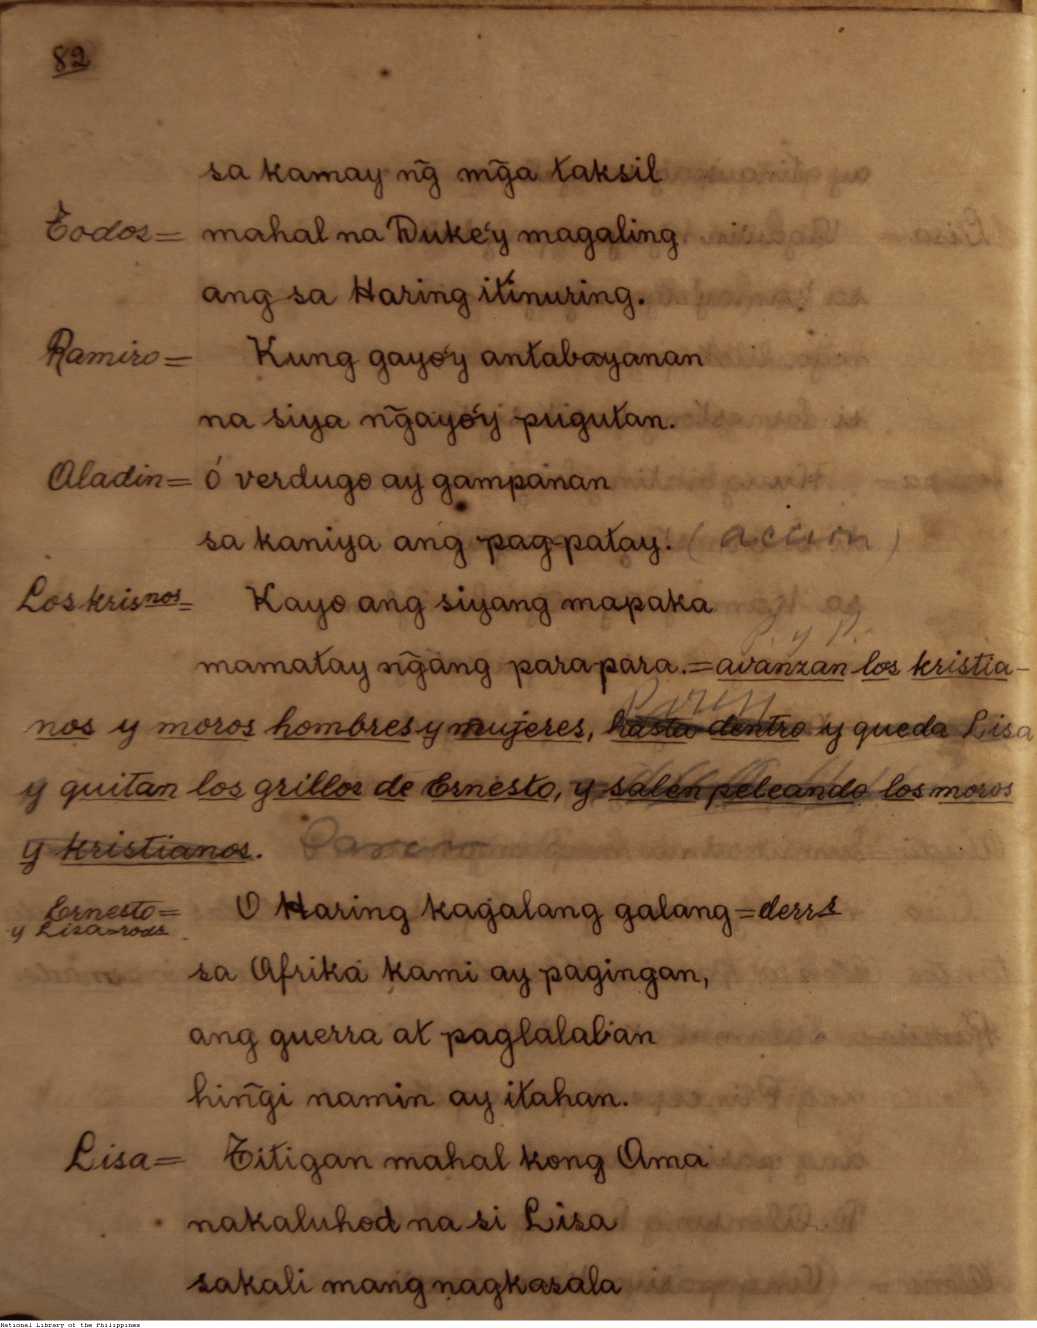 82
sa kamay ng̃ mg̃a taksil
Todos= mahal na Duke'y magaling
ang sa Haring itinuring.
Ramiro= Kung gayo'y antabayanan
na siya ng̃ayo'y pugutan.
Aladin= ó verdugo ay gampanan
sa kaniya ang pag-patay. (accion)
Los krisnos= Kayo ang siyang mapaka
P. y P.
mamatay ng̃ang parapara.=avanzan los kristia-
nos y moros hombres y mujeres, hasta dentro y queda Lisa
y quitan los grillos de Ernesto, y salen peleando los moros
y kristianos.
Ernesto= O Haring kagalang galang=derrs
y Lisa=rods
sa Afrika kami ay pagingan,
ang guerra at paglalaban
hing̃i namin ay itahan.
Lisa= Titigan mahal kong Ama
nakaluhod na si Lisa
sakali mang nagkasala
National Library of the Philippines